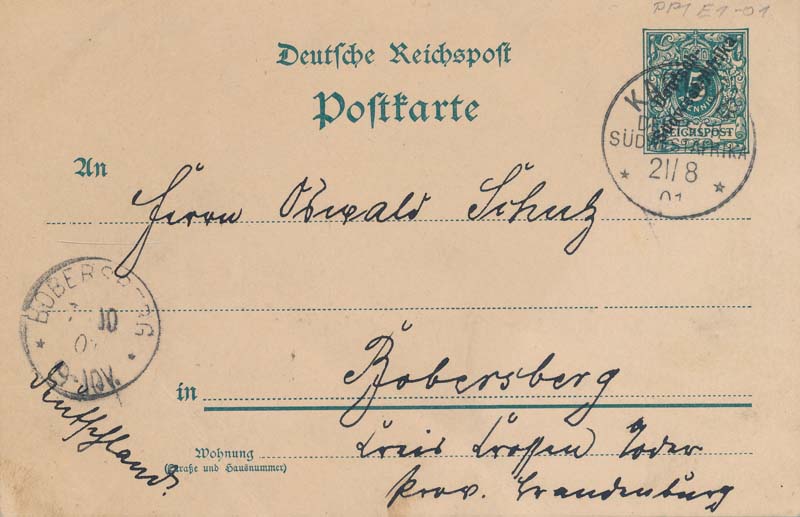 PP1 E1-01
Deutsche Reichspost
Postkarte
5
PFENNIG
REICHSPOST
DEUTSCH-
SÜDWESTAFRIKA
21/8
01
An
Herrn Oswald Schulz
BOBERSBERG
10
in Bobersberg
Deutschland.
Wohnung Kreis Crossen Joder
(Straße und Hausnummer)
Prov. Brandenburg